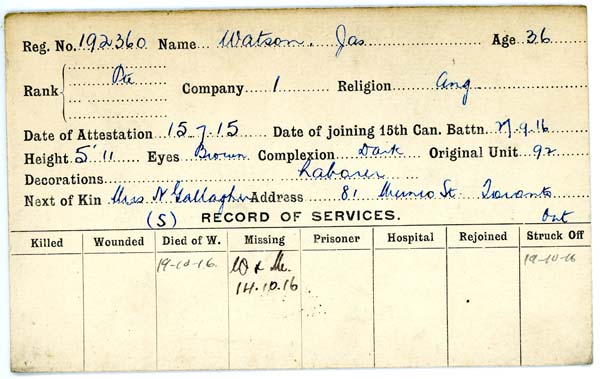 Reg. No. 192360 Name Watson, Jas Age 36
Rank Pte Company 1 Religion Ang
Date of Attestation 15.7.15 Date of joining 15th Can. Battn. 27.9.16
Height 5' 11 Eyes Brown Complexion Dark Original Unit 92
Decorations Laborer
Next of Kin Miss N Gallagher Address 81 Munro St. Toronto
(S) RECORD OF SERVICES. Ont
Killed Wounded Died of W. Missing Prisoner Hospital Rejoined Struck Off
19-10-16. W & M. 19-10-16
14.10.16